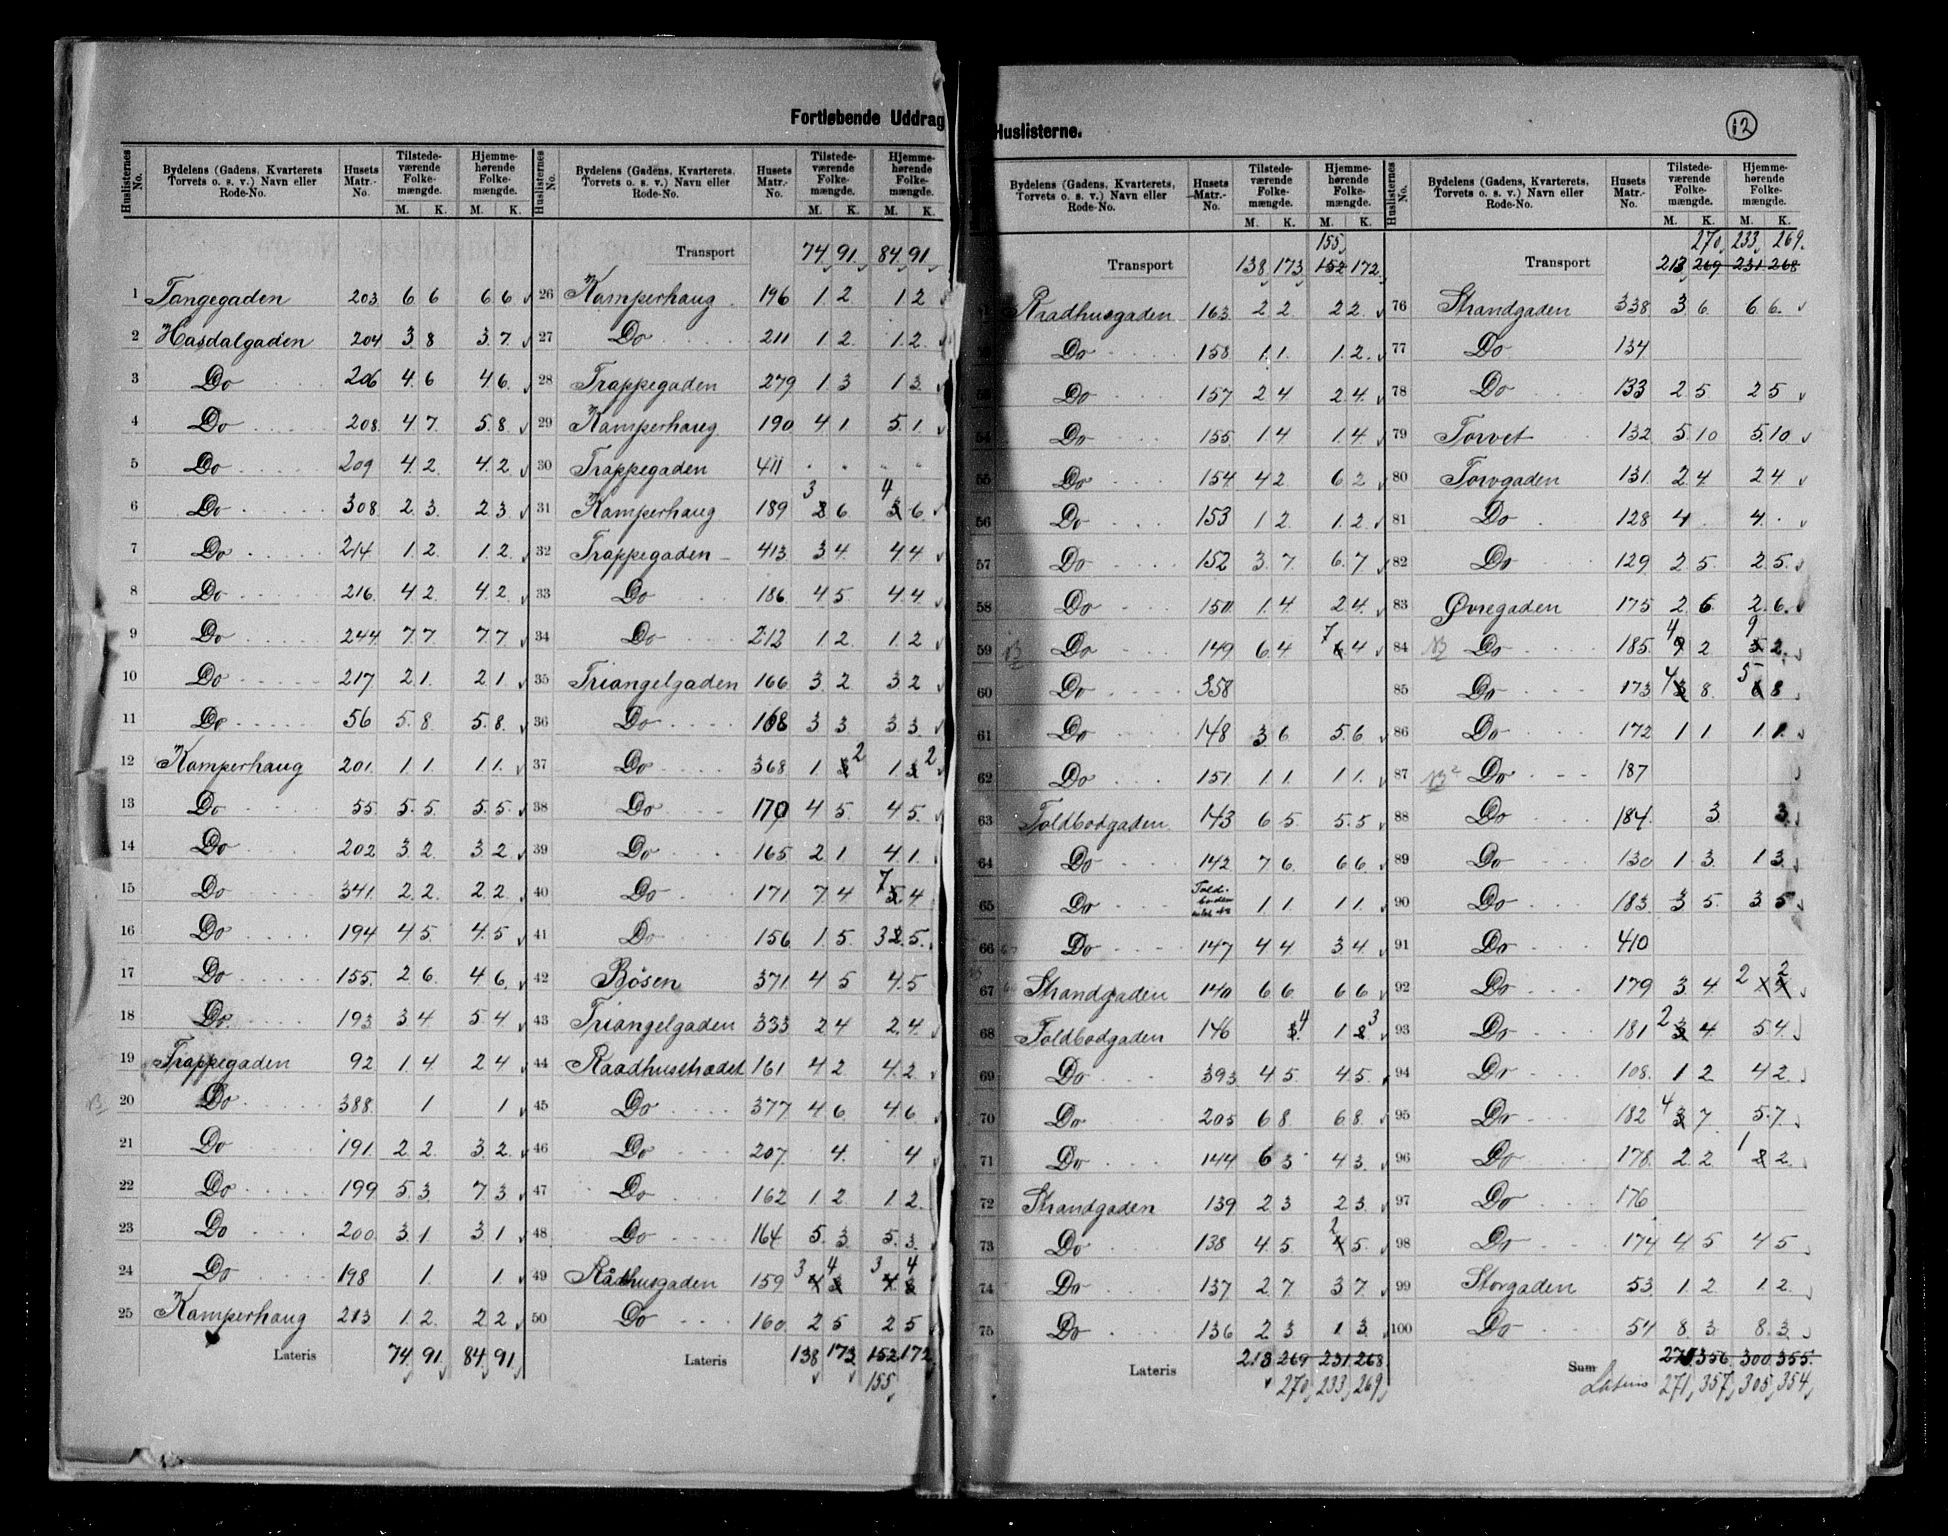 Fortløbende Uddrag
Huslisterne.
12
Huslisternes No. Bydelens (Gadens, Kvarterets Torvets o. s. v.) Navn eller Rode-No. Husets Matr.-No. Tilstedeværende Folkemængde. M. K. Hjemmehørende Folkemængde. M. K.
1 Tangegaden 203 6 6 6 6
2 Hasdalgaden 204 3 8 3 7
3 Do 206 4 6 4 6
4 Do 208 4 7 5 8
5 Do 209 4 2 4 2
6 Do 308 2 3 2 3
7 Do 214 1 2 1 2
8 Do 216 4 2 4 2
9 Do 244 7 7 7 7
10 Do 217 2 1 2 1
11 Do 56 5 8 5 8
12 Kamperhaug 201 1 1 1 1
13 Do 55 5 5 5 5
14 Do 202 3 2 3 2
15 Do 341 2 2 2 2
16 Do 194 4 5 4 5
17 Do 155 2 6 4 6
18 Do 193 3 4 5 4
19 Trappegaden 92 1 4 2 4
20 Do 388 1 1
21 Do 191 2 2 3 2
22 Do 199 5 3 7 3
23 Do 200 3 1 3 1
24 Do 198 1 1
25 Kamperhaug 213 1 2 2 2
Lateris 74 91 84 91
Huslisternes No. Bydelens (Gadens, Kvarterets Torvets o. s. v.) Navn eller Rode-No. Husets Matr.-No. Tilstedeværende Folkemængde. M. K. Hjemmehørende Folkemængde. M. K.
Transport 74 91 84 91
26 Kamperhaug 196 1 2 1 2
27 Do 211 1 2 1 2
28 Trappegaden 279 1 3 1 3
29 Kamperhaug 190 4 1 5 1
30 Trappegaden 411
31 Kamperhaug 189 3 6 4 6
32 Trappegaden 413 3 4 4 4
33 Do 186 4 5 4 4
34 Do 212 1 2 1 2
35 Triangelgaden 166 3 2 3 2
36 Do 168 3 3 3 3
37 Do 368 1 2 1 2
38 Do 170 4 5 4 5
39 Do 165 2 1 4 1
40 Do 171 7 4 7 4
41 Do 156 1 5 3 5
42 Bøsen 371 4 5 4 5
43 Triangelgaden 333 2 4 2 4
44 Raadhusstrædet 161 4 2 4 2
45 Do 377 4 6 4 6
46 Do 207 4 4
47 Do 162 1 2 1 2
48 Do 164 5 3 5 3
49 Rådhusgaden 159 3 4 3 4
50 Do 160 2 5 2 5
Lateris 138 173 152 172
155
Bydelens (Gadens, Kvarterets, Torvets o. s. v.) Navn eller Rode-No. Husets Matr.-No. Tilstedeværende Folkemængde. M. K. Hjemmehørende Folkemængde. M. K.
155
Transport 138 173 152 172
Raadhusgaden 163 2 2 2 2
Do 158 1 1 1 2
Do 157 2 4 2 4
54 Do 155 1 4 1 4
55 Do 154 4 2 6 2
56 Do 153 1 2 1 2
57 Do 152 3 7 6 7
58 Do 150 1 4 2 4
59 Do 149 6 4 7 4
60 Do 358
61 Do 148 3 6 5 6
62 Do 151 1 1 1 1
63 Toldbodgaden 143 6 5 5 5
64 Do 142 7 6 6 6
65 Do 1 1 1 1
66 Do 147 4 4 3 4
67 Strandgaden 140 6 6 6 6
68 Toldbodgaden 146 4 1 3
69 Do 393 4 5 4 5
70 Do 205 6 8 6 8
71 Do 144 6 3 4 3
72 Strandgaden 139 2 3 2 3
73 Do 138 4 5 2 5
74 Do 137 2 7 3 7
75 Do 136 2 3 1 3
Lateris 213 269 231 268
270 233 269
Huslisternes No. Bydelens (Gadens, Kvarterets, Torvets o. s. v.) Navn eller Rode-No. Husets Matr.-No. Tilstedeværende Folkemængde. M. K. Hjemmehørende Folkemængde. M. K.
270 233 269
Transport 213 269 231 268
76 Strandgaden 338 3 6 6 6
77 Do 134
78 Do 133 2 5 2 5
79 Torvet 132 5 10 5 10
80 Torvgaden 131 2 4 2 4
81 Do 128 4 4
82 Do 129 2 5 2 5
83 Øvregaden 175 2 6 2 6
84 Do 185 4 2 9 2
85 Do 173 4 8 5 8
86 Do 172 1 1 1 1
87 Do 187
88 Do 184 3 3
89 Do 130 1 3 1 3
90 Do 183 3 5 3 5
91 Do 410
92 Do 179 3 4 2 2
93 Do 181 2 4 5 4
94 Do 108 1 2 4 2
95 Do 182 4 7 5 7
96 Do 178 2 2 1 2
97 Do 176
98 Do 174 4 5 4 5
99 Storgaden 53 1 2 1 2
100 Do 54 8 3 8 3
Sum 356 300 355
Lateris 271 357 305 354